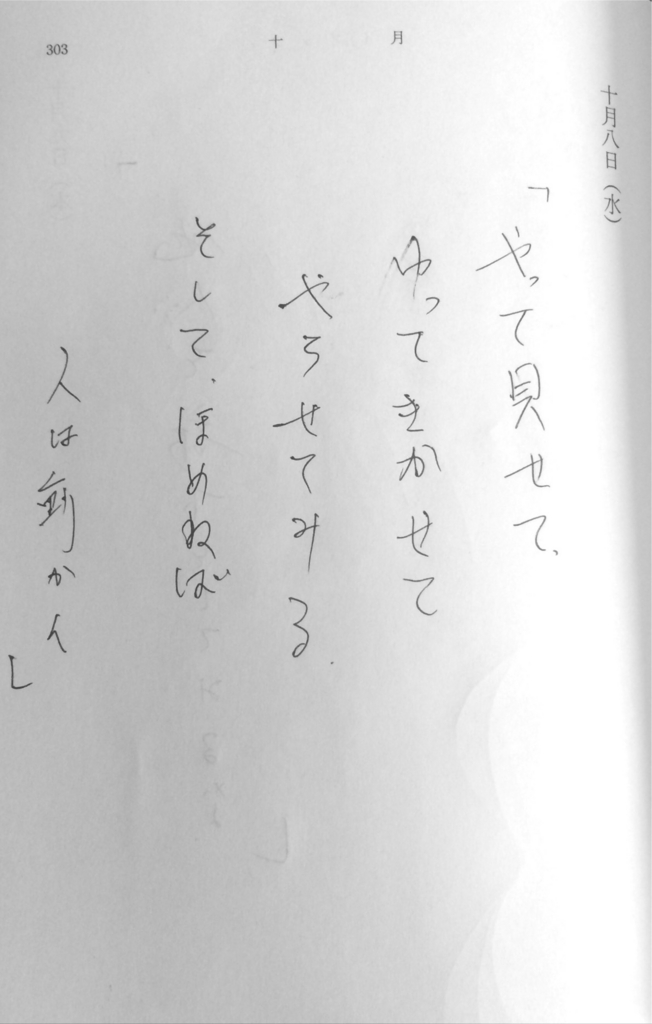 303 十 月
十月八日（水）
「やって見せて、
ゆってきかせて
やらせてみる.
そして、ほめねば
人は動かん」